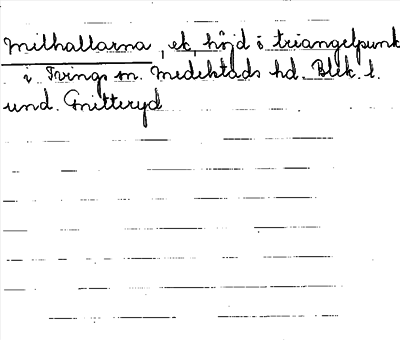 Milhallarna, ek. höjd i triangelpunkt
i Tvings sn. Medelstads hd. Blek. l.
und. Gnitteryd